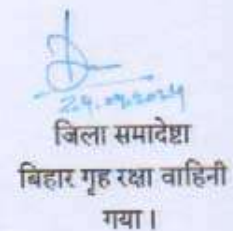 24.09.2024
जिला समादेष्टा
बिहार गृह रक्षा वाहिनी
गया।